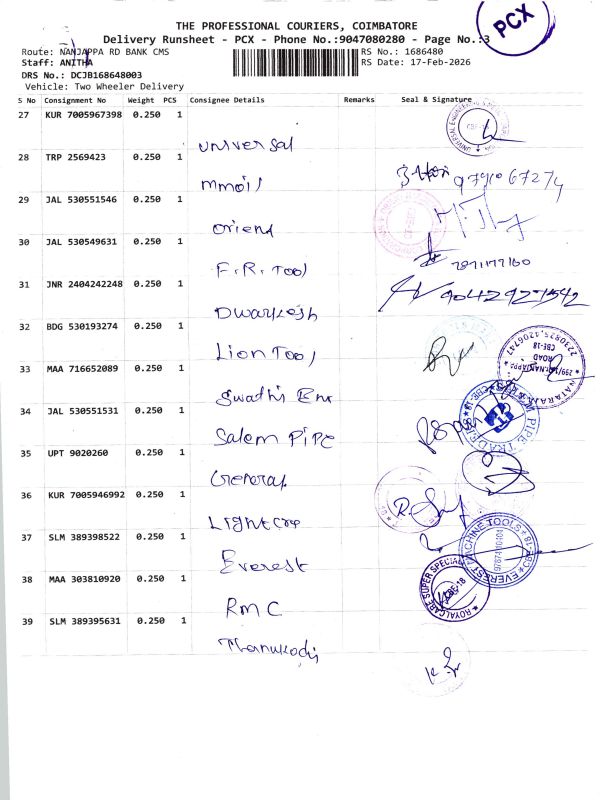 THE PROFESSIONAL COURIERS, COIMBATORE
Delivery Runsheet - PCX - Phone No.:9047080280 - Page No.:3
PCX
Route: NANJAPPA RD BANK CMS
RS No.: 1686480
Staff: ANITHA
RS Date: 17-Feb-2026
DRS No.: DCJB168648003
Vehicle: Two Wheeler Delivery
S No Consignment No Weight PCS Consignee Details Remarks Seal & Signature
27 KUR 7005967398 0.250 1
universal
28 TRP 2569423 0.250 1
mmoil 9790 67274
29 JAL 530551546 0.250 1
oriend
30 JAL 530549631 0.250 1
F.R. Tool
31 JNR 2404242248 0.250 1
Dwarkesh
32 BDG 530193274 0.250 1
Lion Tool
33 MAA 716652089 0.250 1
Swathi Enr
34 JAL 530551531 0.250 1
Salem PIPE
35 UPT 9020260 0.250 1
General
36 KUR 7005946992 0.250 1
Light
37 SLM 389398522 0.250 1
Everest
EVEREST MACHINE TOOLS
38 MAA 303810920 0.250 1
RMC
ROYALCARE SUPER SPECIAL
CBE-18
39 SLM 389395631 0.250 1
Thanukodi